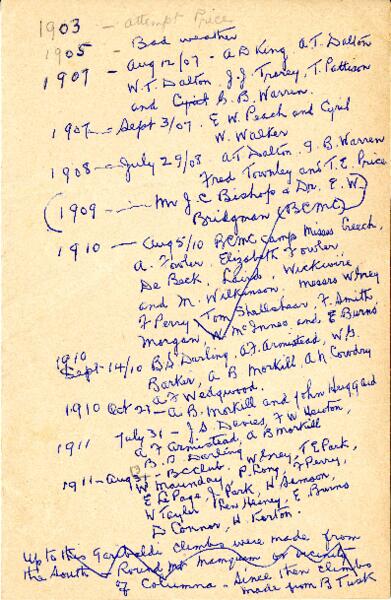 1903 - attempt Price
1905 - Bad weather
1907 - Aug 12/07 - A D King, A.T. Dalton
W.T. Dalton, J.J. Trorey, T. Pattison
and Cyril G. B. Warren.
1907 - Sept 3/07. E W Peach and Cyril
W. Walker
1908 - July 29/08. A T Dalton, G. B. Warren
Fred Townley and T. E. Price
(1909 - Mr J. C. Bishop & Dr. E. W.
Bridgman (BCMC)
1910 - Aug 5/10 BCMC Camp Misses Creech,
A. Fowler, Elizabeth Fowler
De Beck, Laird, Wickwire
and M. Wilkinson. messrs
F Perry, Tom Shallshaar, F. Smith,
Morgan, W. McInnes and E Burns
1910
Sept 14/10 B.S Darling, A.F. Armistead, W.G.
Barker, A B Morkill, A N Cowdry
A F Wedgwood.
1910 Oct 21 - A. B. Morkill and John Huggard
1911 July 31 - J.S. Davies, F W Hewton,
A F Armistead, A B Morkill,
B. S Darling
1911 - Aug - BCClub. T E Park,
W Maunday, P. Long, F Perry,
E LePage, J. Park, H Samson,
W Taylor, Ben Hasney, E Burns
D Connor, H. Korton.
Up to this Garibaldi climbs were made from
the South - Round Mt Mamquam or vicinity
of Columna - Since then climbs
made from B Tusk